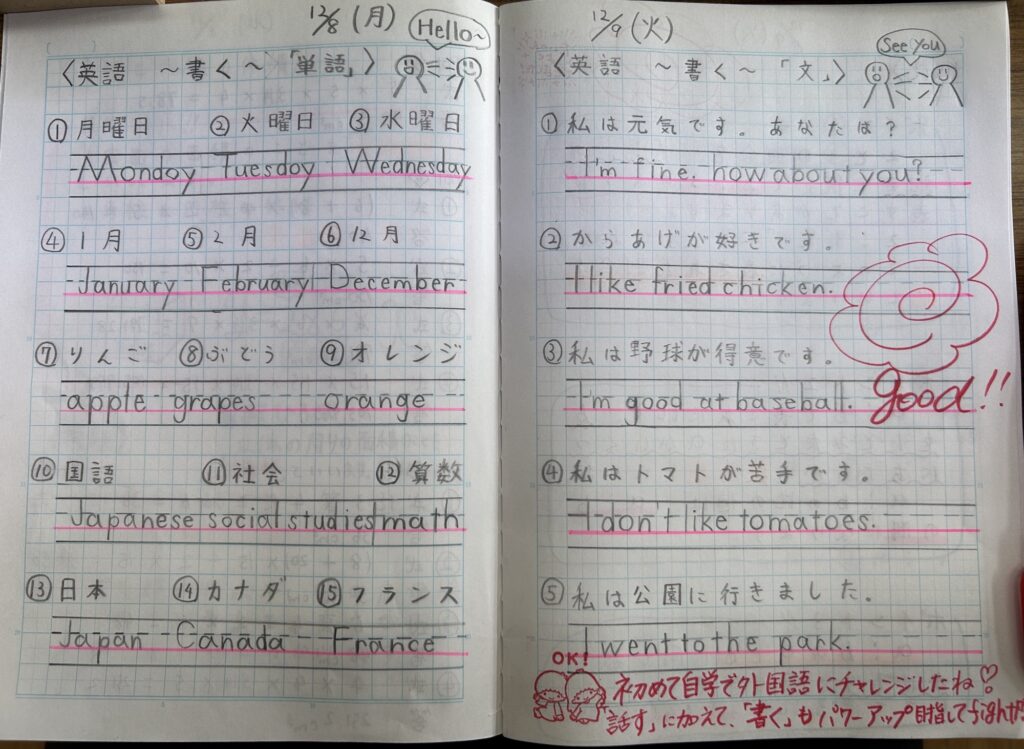 12/8 (月)
Hello~
〈英語 ～書く～ 「単語」〉
① 月曜日 ② 火曜日 ③ 水曜日
Monday Tuesday Wednesday
④ 1月 ⑤ 2月 ⑥ 12月
January February December
⑦ りんご ⑧ ぶどう ⑨ オレンジ
apple grapes orange
⑩ 国語 ⑪ 社会 ⑫ 算数
Japanese social studies math
⑬ 日本 ⑭ カナダ ⑮ フランス
Japan Canada France
12/9 (火)
See You
〈英語 ～書く～ 「文」〉
① 私は元気です。あなたは?
I'm fine. how about you?
② からあげが好きです。
I like fried chicken.
③ 私は野球が得意です。
I'm good at baseball.
good!!
④ 私はトマトが苦手です。
I don't like tomatoes.
⑤ 私は公園に行きました。
I went to the park.
OK!
初めて自学で外国語にチャレンジしたね♡
「話す」に加えて、「書く」もパワーアップ目指してfight!!